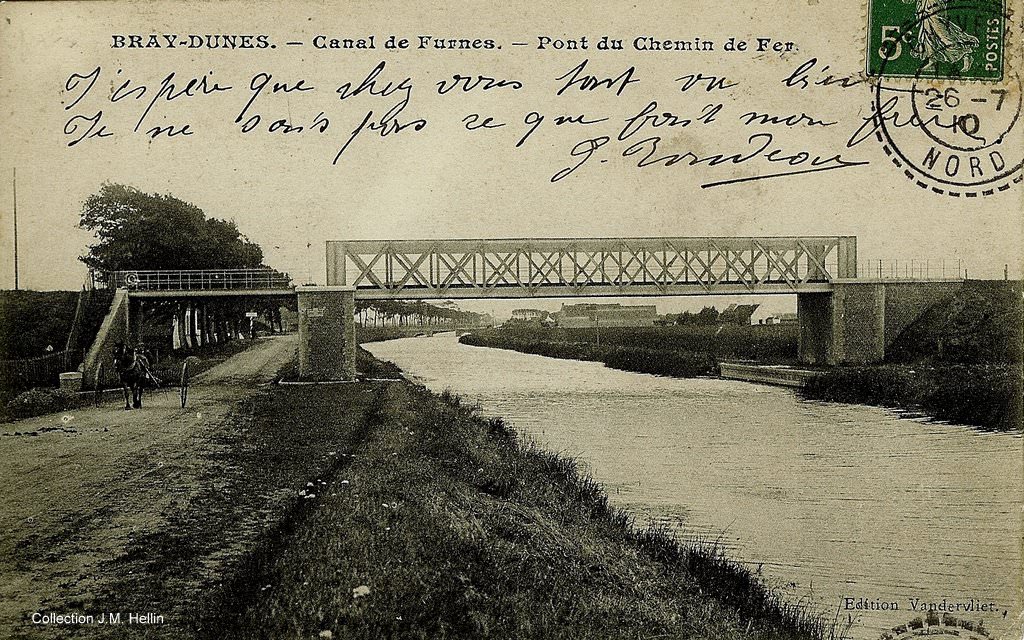 BRAY-DUNES. — Canal de Furnes. — Pont du Chemin de Fer.
5c POSTES
J'espère que chez vous tout va bien
Je ne sais pas ce que fait mon
26 -7
10
NORD
Collection J.M. Hellin
Edition Vandervliet.